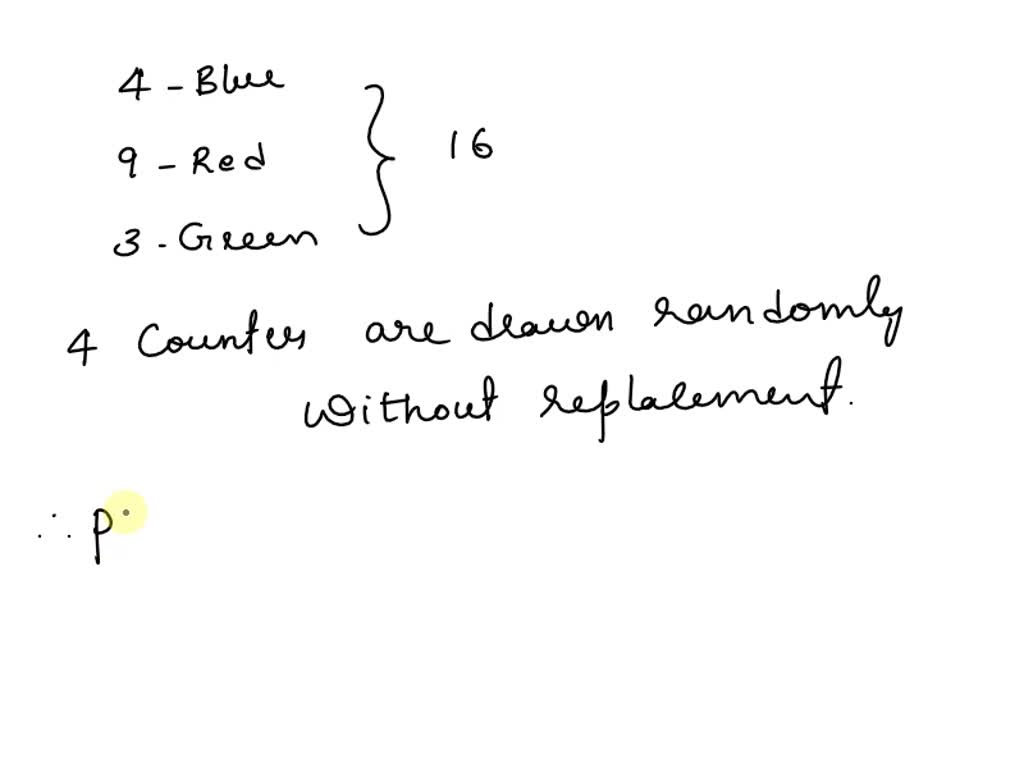 4 - Blue
9 - Red
3 - Green
16
4 Counters are drawn randomly
without replacement.
∴ P